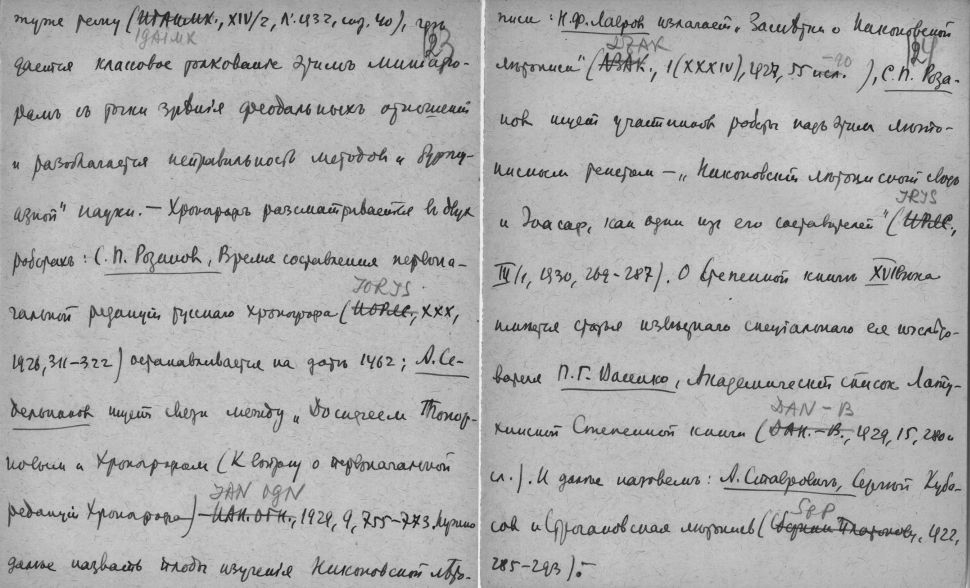 туже реку (ИГАИМК, XIV/2, Л. 1932, стр. 40), где
IGAIMK
23
дается классовое толкованіе этимъ миніатю-
рамъ съ точки зрѣнія феодальныхъ отношеній
и разоблачается неправильность методовъ и „буржу-
азной" науки. — Хронографъ разсматривается въ двух
работахъ: С. П. Розановъ, Время составленія первона-
IORJS
чальной редакціи русскаго Хронографа (ИОРЯС, XXX,
1926, 311-322) останавливается на датѣ 1462; А. Се-
дельниковъ ищетъ связи между „Досиѳеем Топор-
ковым и Хронографам (К вопросу о первоначальной
IAN OGN
редакціи Хронографа) — ИАН. ОГН., 1929, 9, 755-773. Нужно
далѣе назвать чтобы изученія Никоновской лѣто-
24
писи: Н. Ф. Лавров излагает „Заметки о Никоновской
LZAK
лѣтописи" (ЛЗАК, 1 (XXXIV), 1927, 55 и сл. -90), С. П. Роза-
нов ищет участников работы надъ этим лѣто-
писным — „Никоновскій лѣтописный сводъ
и Іоасаф, как один из его составителей" (ИОРЯС,
IORJS
III/1, 1930, 269-287). О Степенной книгѣ XVI вѣка
имѣется статья извѣстнаго спеціальнаго ея изслѣдо-
вателя П. Г. Васенко, Академическій список Лату-
DAN - B
хинской Степенной книги (ДАН.-В., 1929, 15, 280 и
сл.). И далѣе назовемъ: А. Ставровичъ, Сергѣй Куба-
SbP
сов и Строгановская лѣтопись (Сборник Платонову, 1922,
285-293).